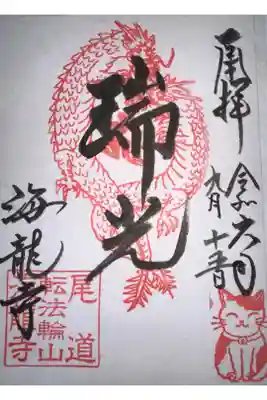 奉拝
令和六年
九月十五日
瑞光
海龍寺
尾道
転法輪山
海龍寺